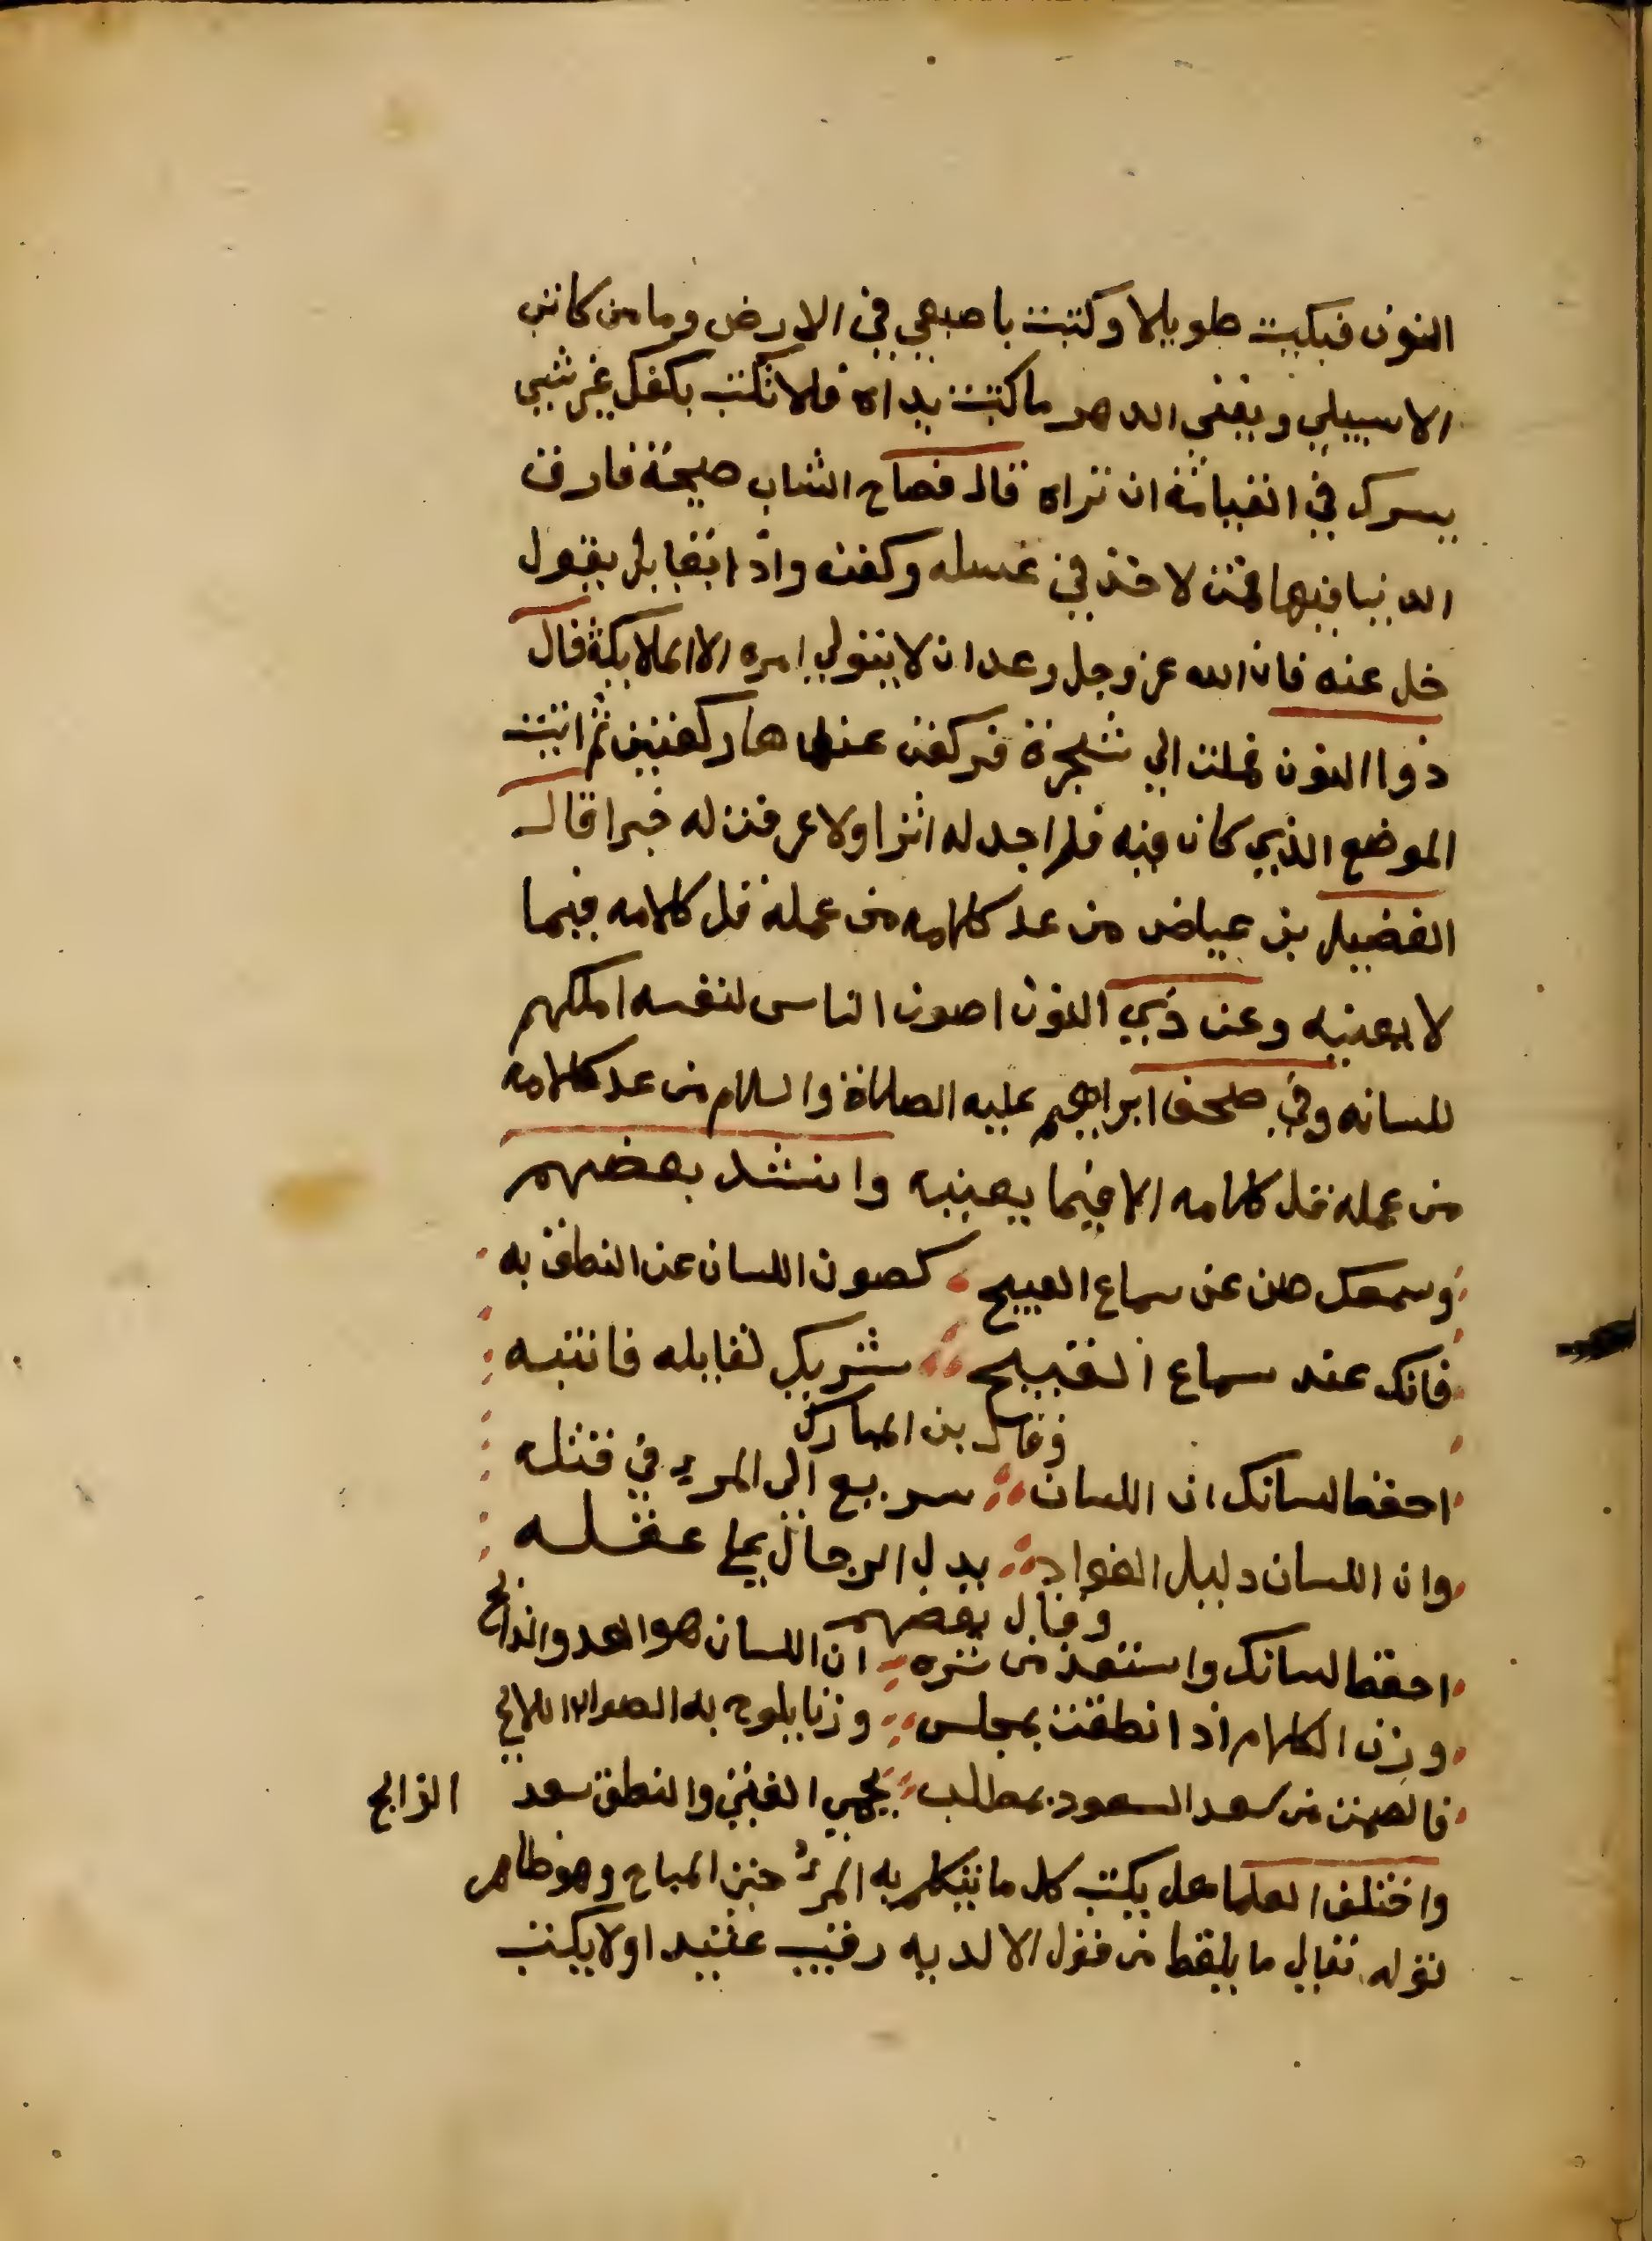 النون فبكيت طويلا وكتبت باصبعي في الارض وما من كاتب
الا سيبلي ويفني الدهر ما كتبت يداه فلا تكتب بكفك غير شيي
يسرك في القيامة ان تراه قال فصاح الشاب صيحة فارق
الدنيا فيها فقمت لاخذ في غسله وكفنه واذا بقايل يقول
خل عنه فان الله عز وجل وعد ان لا يتولي امره الا الملايكة قال
ذوا النون فملت الي شجرة فركعت عندها ركعتين ثم اتيت
الموضع الذي كان فيه فلم اجد له اثرا ولا عرفت له خبرا قال
الفضيل بن عياض من عد كلامه من عمله قل كلامه فيما
لا يعنيه وعن ذي النون اصون الناس لنفسه املكهم
للسانه وفي صحف ابراهيم عليه الصلاة والسلام من عد كلامه
من عمله قل كلامه الا فيما يعنيه وانشد بعضهم
وسمعك صن عن سماع القبيح كصون اللسان عن النطق به
فانك عند سماع القبيح شريك لقايله فانتبه
وقال بن المبارك
احفظ لسانك ان اللسان سريع الي المرء في قتله
وان اللسان دليل الفواد يدل الرجال علي عقله
وقال بعضهم
احفظ لسانك واستعذ من شره ان اللسان هو العدو الذابح
وزن الكلام اذا نطقت بمجلس وزنا يلوح به الصواب اللايح
فالصمت من سعد السعود بمطلب يحيي الفتي والنطق سعد الذابح
واختلف العلما هل يكتب كل ما يتكلم به المرء حتي المباح وهو ظاهر
قوله تعالي ما يلفظ من قول الا لديه رقيب عتيد او لا يكتب